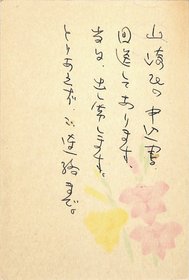 山渓への申込書
回送してあります。
当方、出し席します。
とりあえず、ご連絡まで。